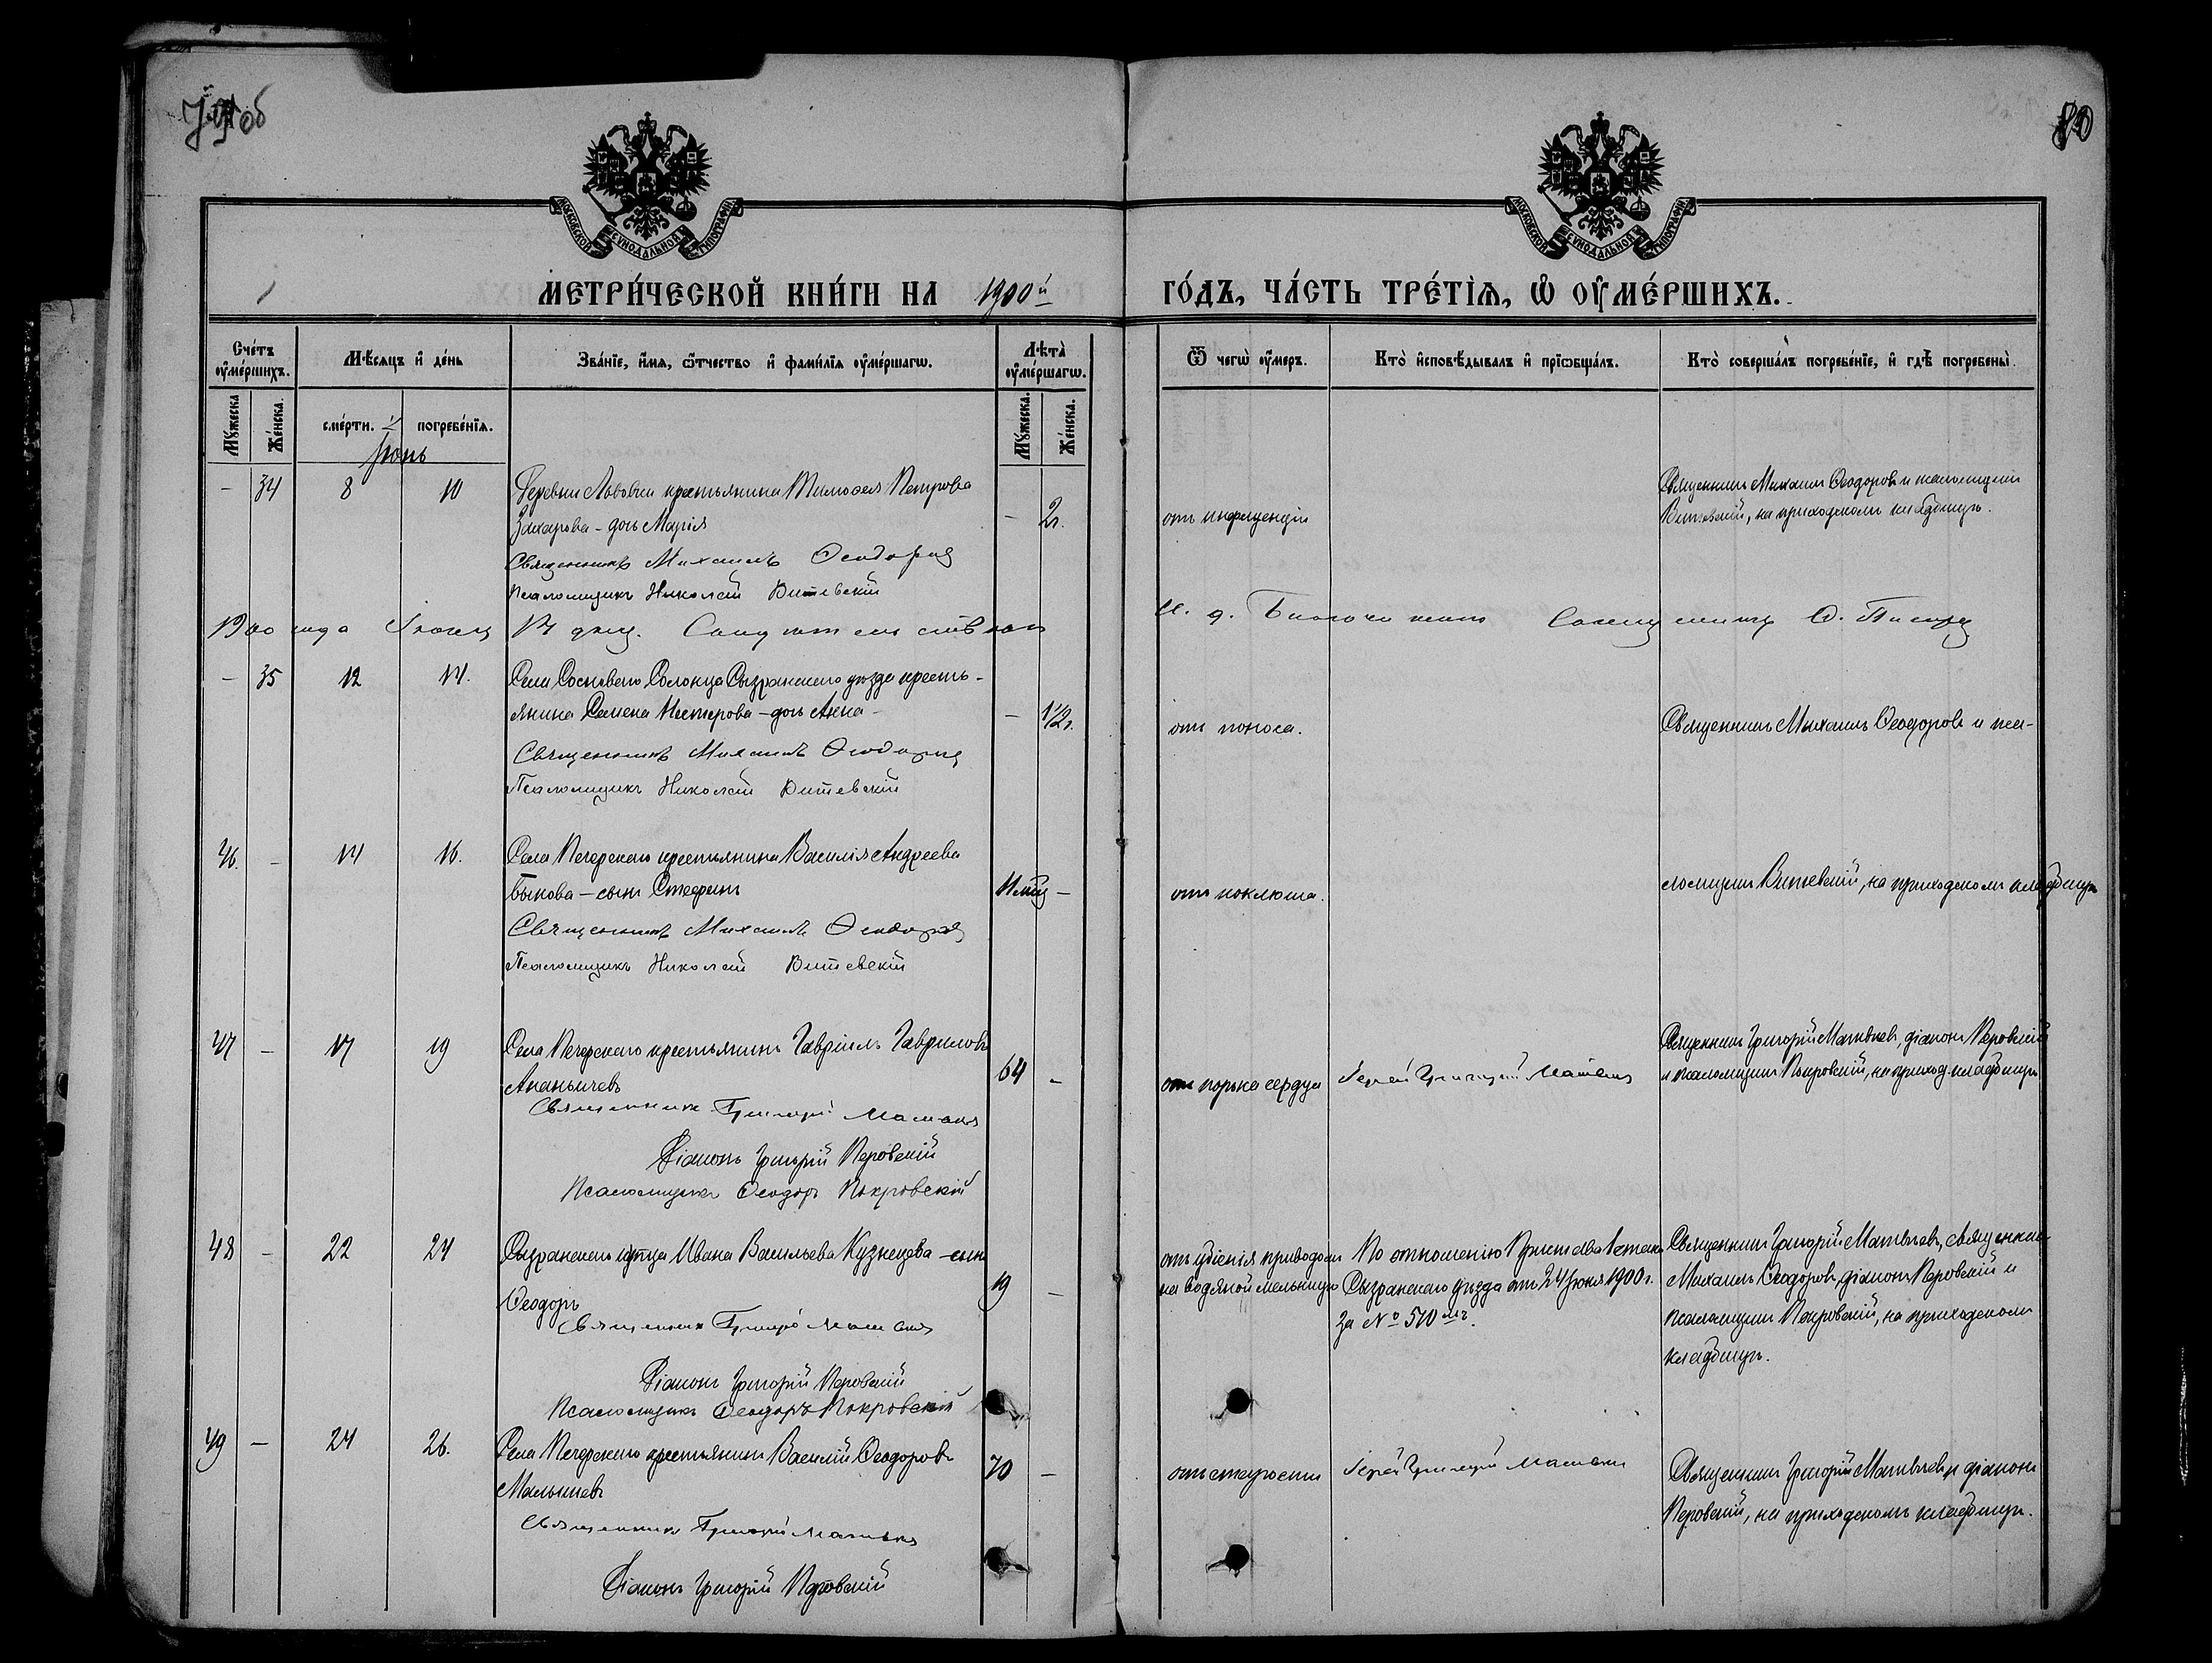 79 об
80
МОСКОВСКОЙ СѴНОДАЛЬНОЙ ТИПОГРАФІИ
МОСКОВСКОЙ СѴНОДАЛЬНОЙ ТИПОГРАФІИ
МЕТРИ́ЧЕСКОЙ КНИ́ГИ НА 1900й ГО́ДЪ, ЧА́СТЬ ТРЕ́ТІѦ, Ѡ ОУ҆МЕ́РШИХЪ.
Сче́тъ оу҆ме́ршихъ.
Мѣ́сяцъ и҆ де́нь
Зва́нїе, и҆́мя, ѻ҆́тчество и҆ фами́лїя оу҆ме́ршагѡ.
Лѣта̀ оу҆ме́ршагѡ.
Ѿ чегѡ̀ оу҆́меръ.
Кто̀ и҆сповѣ́дывалъ и҆ прїѡбща́лъ.
Кто̀ соверша́лъ погребе́нїе, и҆ гдѣ̀ погребены̀.
Мꙋ́жеска.
Же́нска.
сме́рти.
погребе́нїя.
Мꙋ́жеска.
Же́нска.
Іюнь
- 34 8 10 Деревни Львовки крестьянина Тимоѳея Петрова
Захарова - дочь Марія - 2г.
Священникъ Михаилъ Ѳеодоровъ
Псаломщикъ Николай Витевскій
Священникъ Михаилъ Ѳеодоровъ и псаломщикъ
Витевскій, на приходскомъ кладбищѣ.
1900 года Іюня 12 дня.
И. д. Благочиннаго Священникъ
- 35 12 14. Села Сосноваго Солонца Сызранскаго уѣзда кресть-
янина Семена Нестерова - дочь Анна - - 1½г.
Священникъ Михаилъ Ѳеодоровъ
Псаломщикъ Николай Витевскій
отъ поноса.
Священникъ Михаилъ Ѳеодоровъ и пса-
46. - 14 16. Села Печерскаго крестьянина Василія Андреева
Быкова - сынъ Стефанъ -
Священникъ Михаилъ Ѳеодоровъ
Псаломщикъ Николай Витевскій
отъ коклюша.
ломщикъ Витевскій, на приходскомъ кладбищѣ
47 - 17 19 Села Печерскаго крестьянинъ Гавріилъ Гавриловъ
Ананьичевъ 64 -
Священникъ Григорій Матвѣевъ
Діаконъ Григорій Перовскій
Псаломщикъ Ѳеодоръ Покровскій
отъ порока сердца
Іерей Григорій Матвѣевъ
Священникъ Григорій Матвѣевъ, діаконъ Перовскій
и псаломщикъ Покровскій, на приход. кладбищѣ
48 - 22 24 Сызранскаго купца Ивана Васильева Кузнецова - сынъ
Ѳеодоръ 19 -
Священникъ Григорій Матвѣевъ
Діаконъ Григорій Перовскій
Псаломщикъ Ѳеодоръ Покровскій
отъ убіенія приводомъ
на водяной мельницѣ
По отношенію Пристава 1 стана
Сызранскаго уѣзда отъ 24 Іюня 1900 г.
за № 570мъ.
Священникъ Григорій Матвѣевъ, священникъ
Михаилъ Ѳеодоровъ, діаконъ Перовскій и
псаломщикъ Покровскій, на приходскомъ
кладбищѣ.
49 - 24 26. Села Печерскаго крестьянинъ Василій Ѳеодоровъ
Малышевъ 70 -
Священникъ Григорій Матвѣевъ
Діаконъ Григорій Перовскій
отъ старости
Іерей Григорій Матвѣевъ
Священникъ Григорій Матвѣевъ и діаконъ
Перовскій, на приходскомъ кладбищѣ.